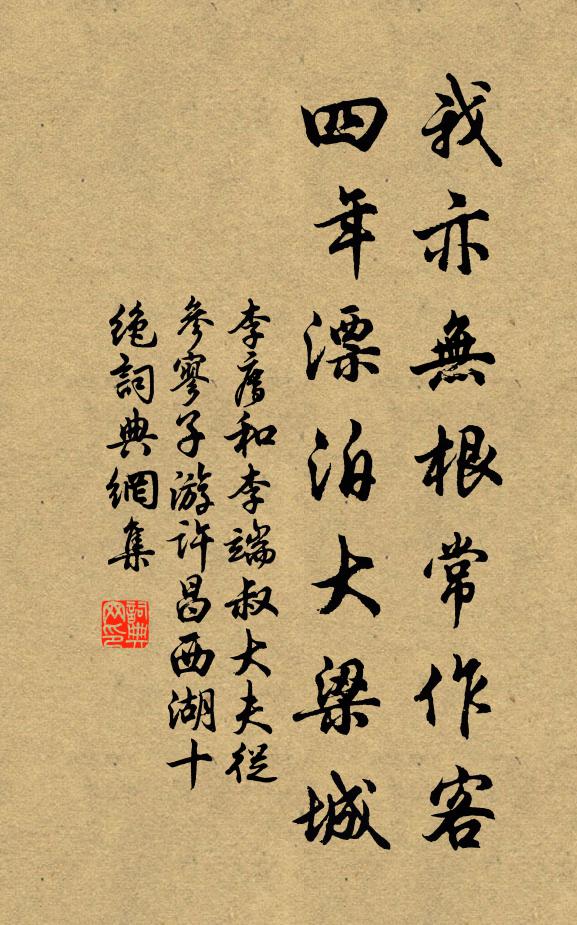 我亦無根常作客
四年漂泊大梁城
李廌和李端叔大夫從
參寥子游許昌西湖十
絶詞典網集
詞典网印